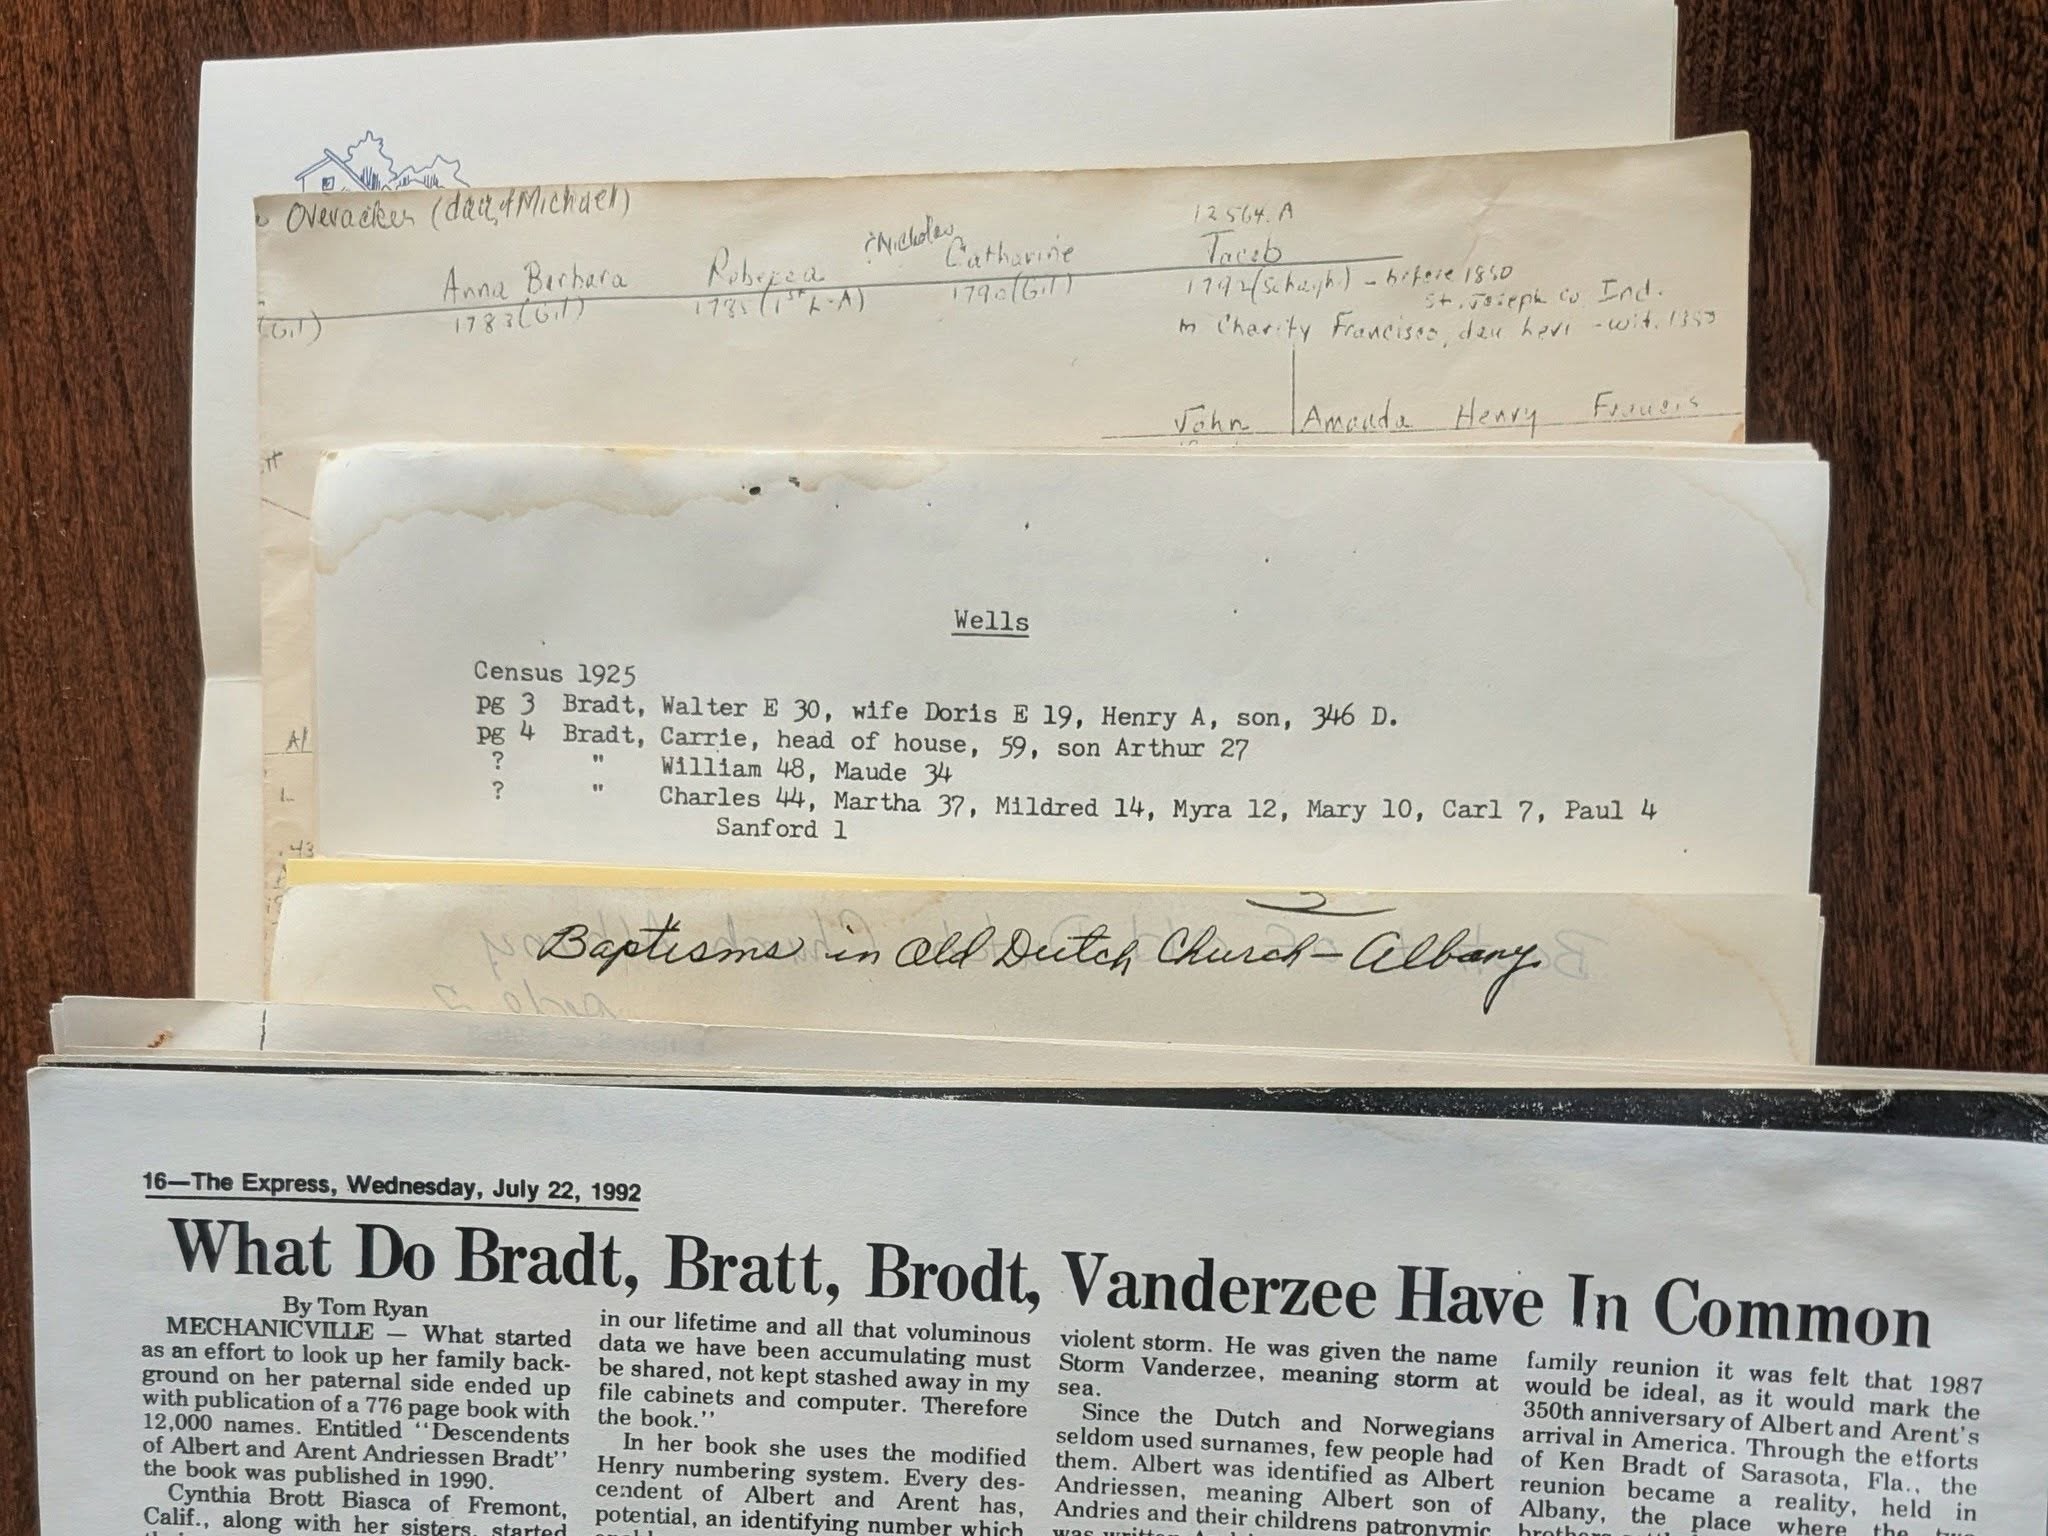 Overacker (dau of Michael)
12564.A
Anna Barbara Rebecca ?Nicholas Catharine Jacob
1783(Gil) 1785(1st L-A) 1790(Gil) 1792(Schagh.) - before 1850
St. Joseph co Ind.
m Charity Francisco, dau
John Amanda Henry Francis
Wells
Census 1925
pg 3 Bradt, Walter E 30, wife Doris E 19, Henry A, son, 346 D.
pg 4 Bradt, Carrie, head of house, 59, son Arthur 27
? " William 48, Maude 34
? " Charles 44, Martha 37, Mildred 14, Myra 12, Mary 10, Carl 7, Paul 4
Sanford 1
Baptisms in Old Dutch Church - Albany.
16—The Express, Wednesday, July 22, 1992
What Do Bradt, Bratt, Brodt, Vanderzee Have In Common
By Tom Ryan
MECHANICVILLE — What started
as an effort to look up her family back-
ground on her paternal side ended up
with publication of a 776 page book with
12,000 names. Entitled "Descendents
of Albert and Arent Andriessen Bradt"
the book was published in 1990.
Cynthia Brott Biasca of Fremont,
Calif., along with her sisters, started
in our lifetime and all that voluminous
data we have been accumulating must
be shared, not kept stashed away in my
file cabinets and computer. Therefore
the book."
In her book she uses the modified
Henry numbering system. Every des-
cendent of Albert and Arent has,
potential, an identifying number which
violent storm. He was given the name
Storm Vanderzee, meaning storm at
sea.
Since the Dutch and Norwegians
seldom used surnames, few people had
them. Albert was identified as Albert
Andriessen, meaning Albert son of
Andries and their childrens patronymic
was written
family reunion it was felt that 1987
would be ideal, as it would mark the
350th anniversary of Albert and Arent's
arrival in America. Through the efforts
of Ken Bradt of Sarasota, Fla., the
reunion became a reality, held in
Albany, the place where the two